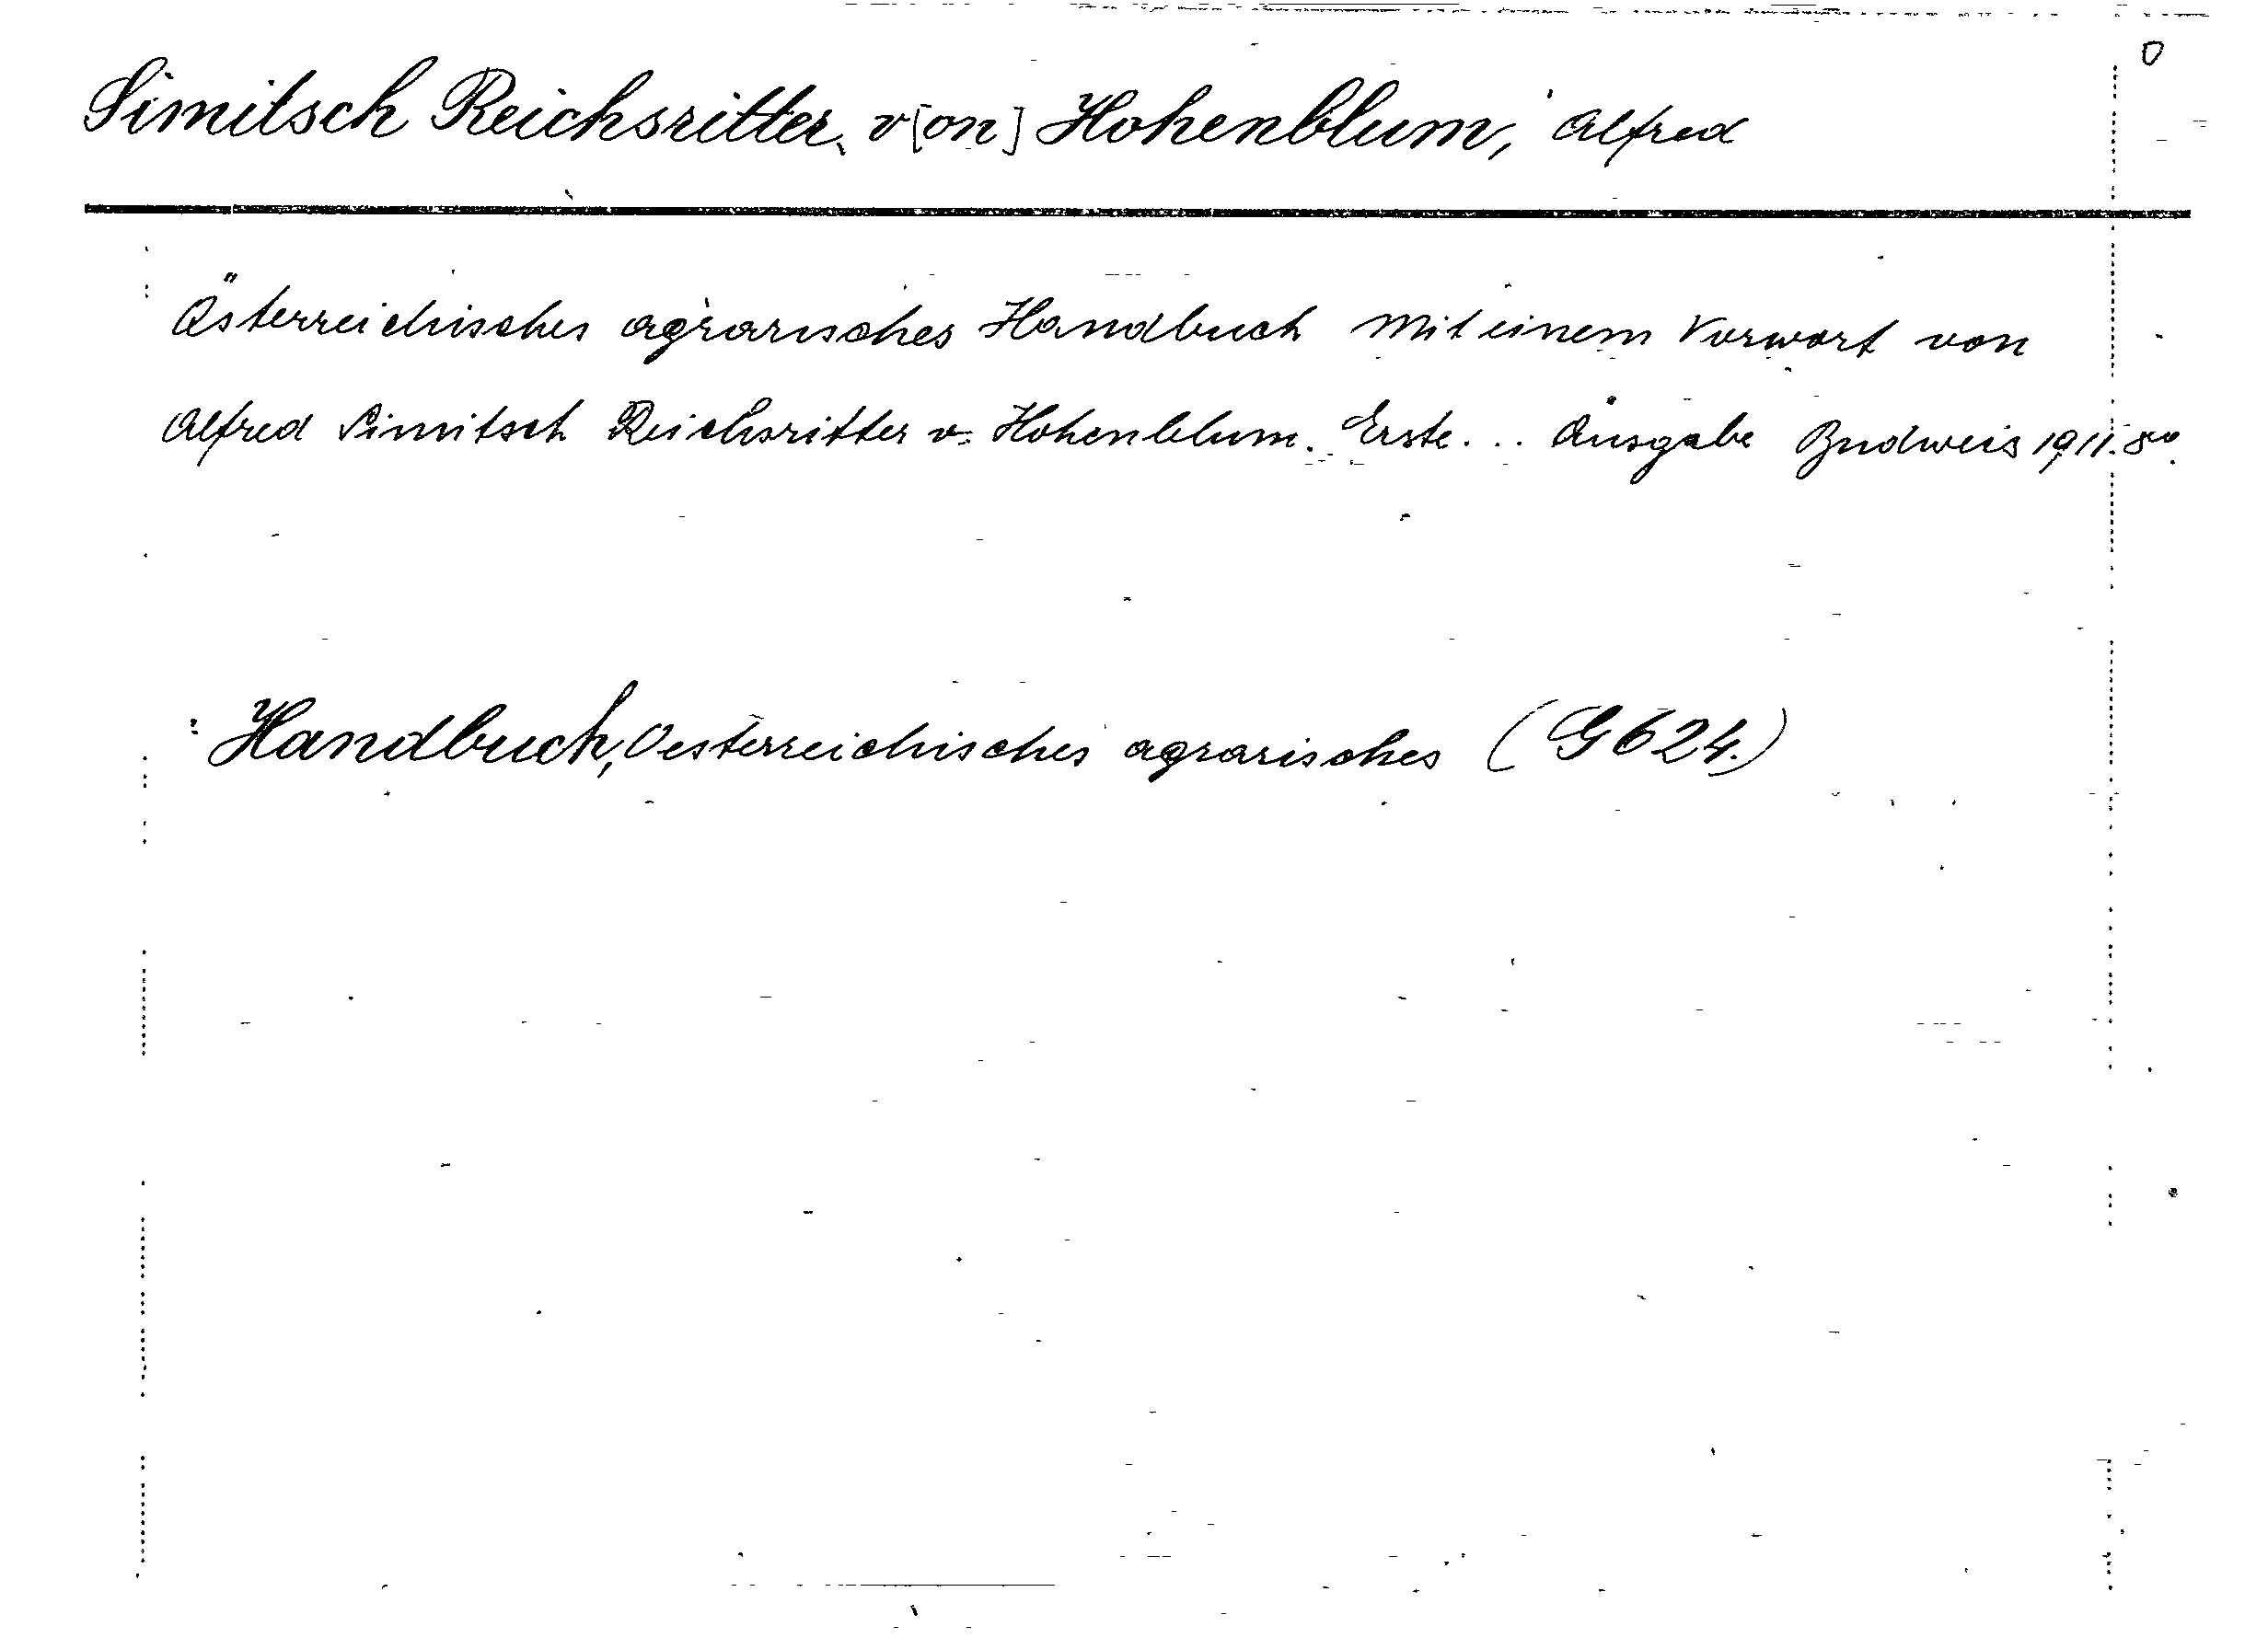 Simitsch Reichsritter v[on] Hohenblum, Alfred
Österreichisches agrarisches Handbuch mit einem Vorwort von
Alfred Simitsch Reichsritter v. Hohenblum. Erste... Ausgabe Budweis 1911. 8°.
: Handbuch, Oesterreichisches agrarisches (G 624.)